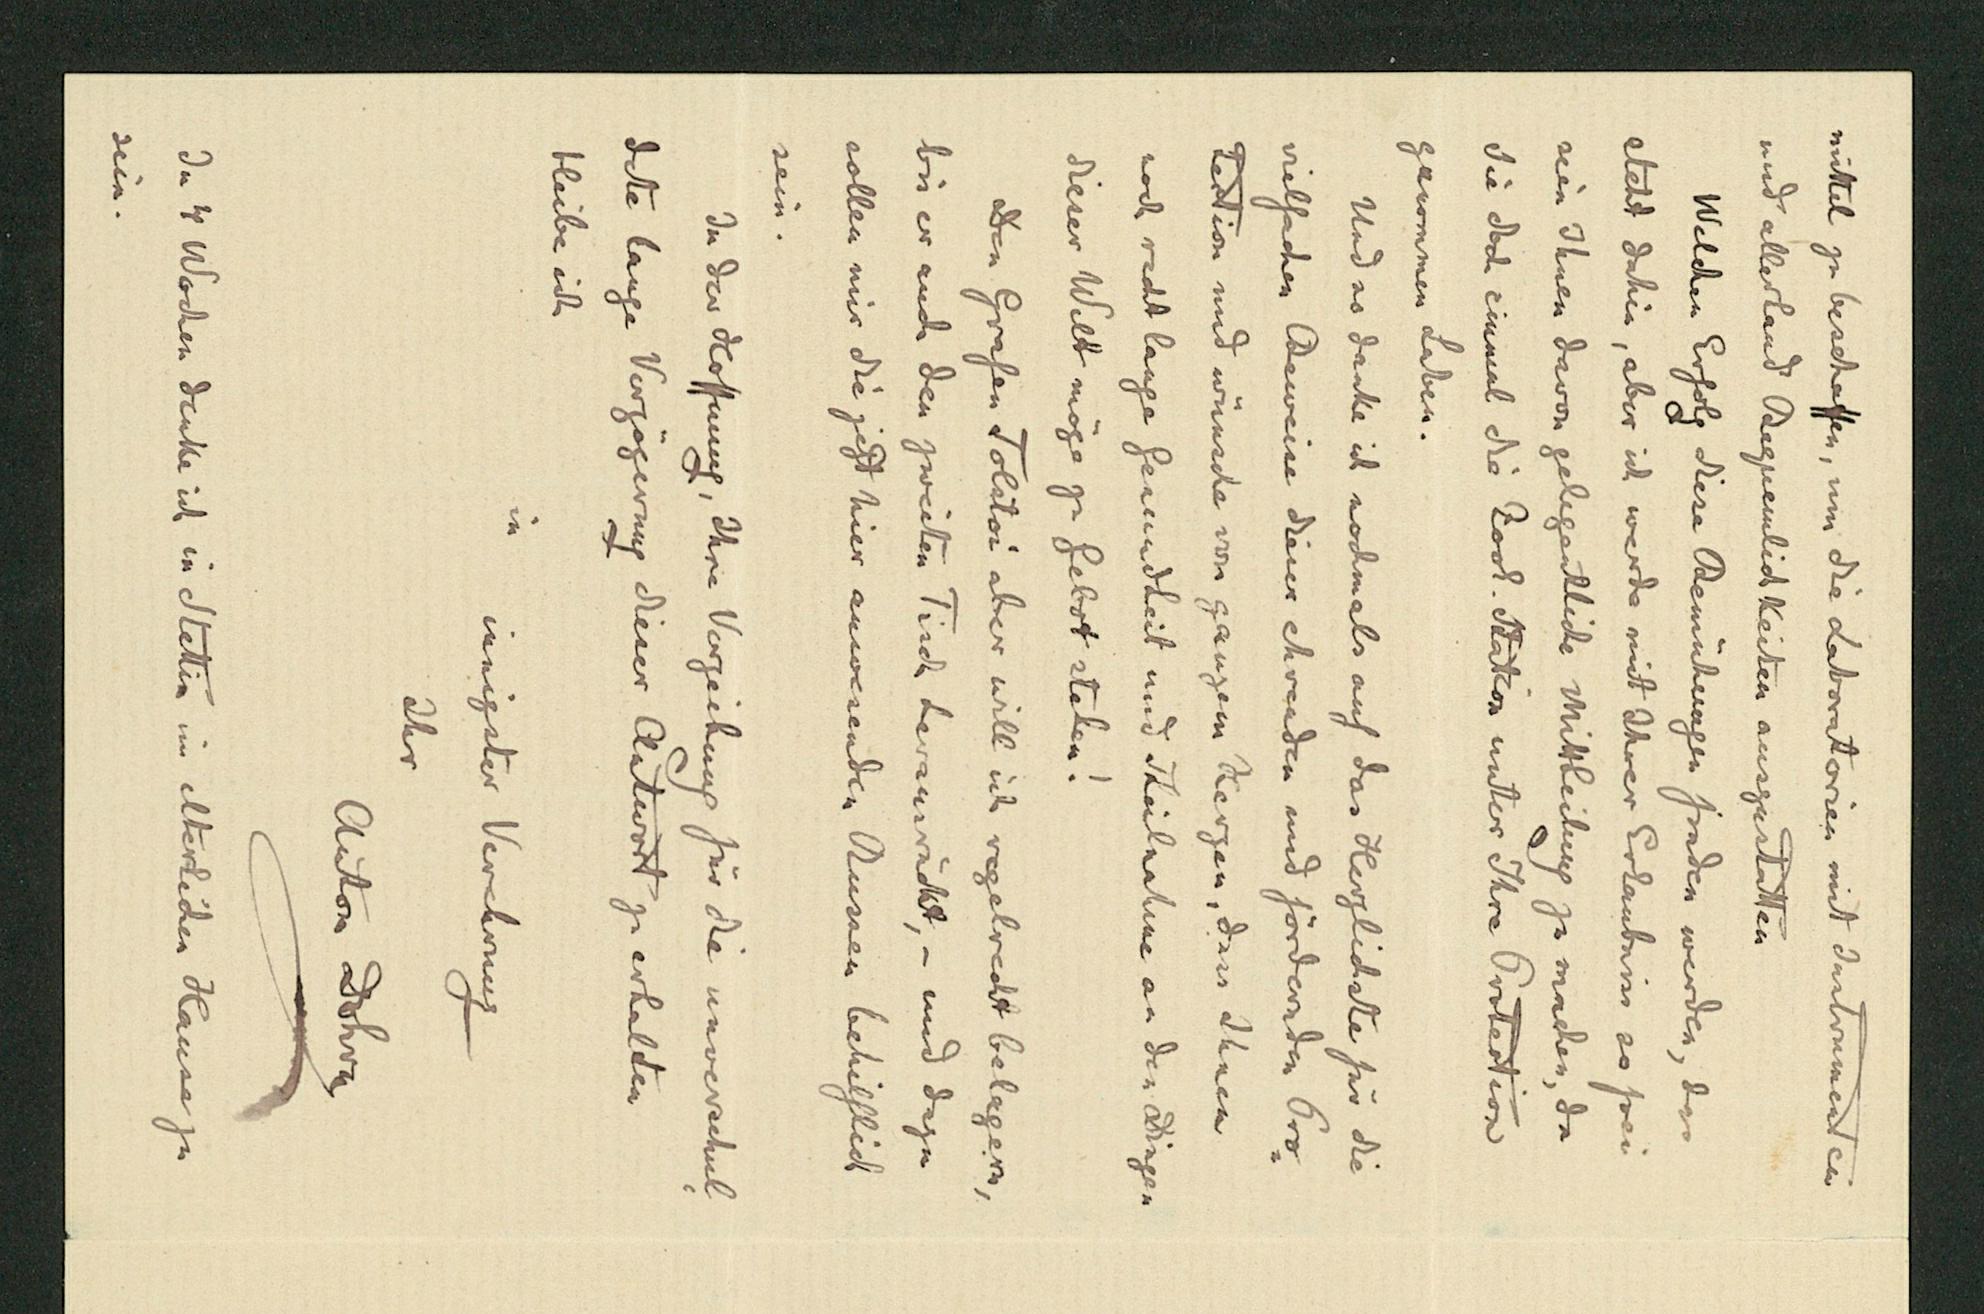 mittel zu beschaffen, um die Laboratorien mit Instrumenten
und allerhand Bequemlichkeiten auszustatten
Welchen Erfolg diese Bemühungen finden werden, das
steht dahin, aber ich werde mit Ihrer Erlaubniss so frei
sein Ihnen davon gelegentliche Mittheilung zu machen, da
Sie doch einmal die Zool. Station unter Ihre Protection
genommen haben.
Und so danke ich nochmals auf das Herzlichste für die
vielfachen Beweise dieser ehrenden und fördernden Pro-
tection und wünsche von ganzem Herzen, dass Ihnen
noch recht lange Gesundheit und Theilnahme an den Dingen
dieser Welt möge zu Gebot stehen!
Den Grafen Tolstoi aber will ich regelrecht belagern,
bis er auch den zweiten Tisch herausrückt, – und dazu
sollen mir die jetzt hier anwesenden Russen behilflich
sein.
In der Hoffnung, Ihre Verzeihung für die unverschul-
dete lange Verzögerung dieser Antwort zu erhalten
bleibe ich
in
innigster Verehrung
Ihr
Anton Dohrn
In 4 Wochen denke ich in Stettin im elterlichen Hause zu
sein.